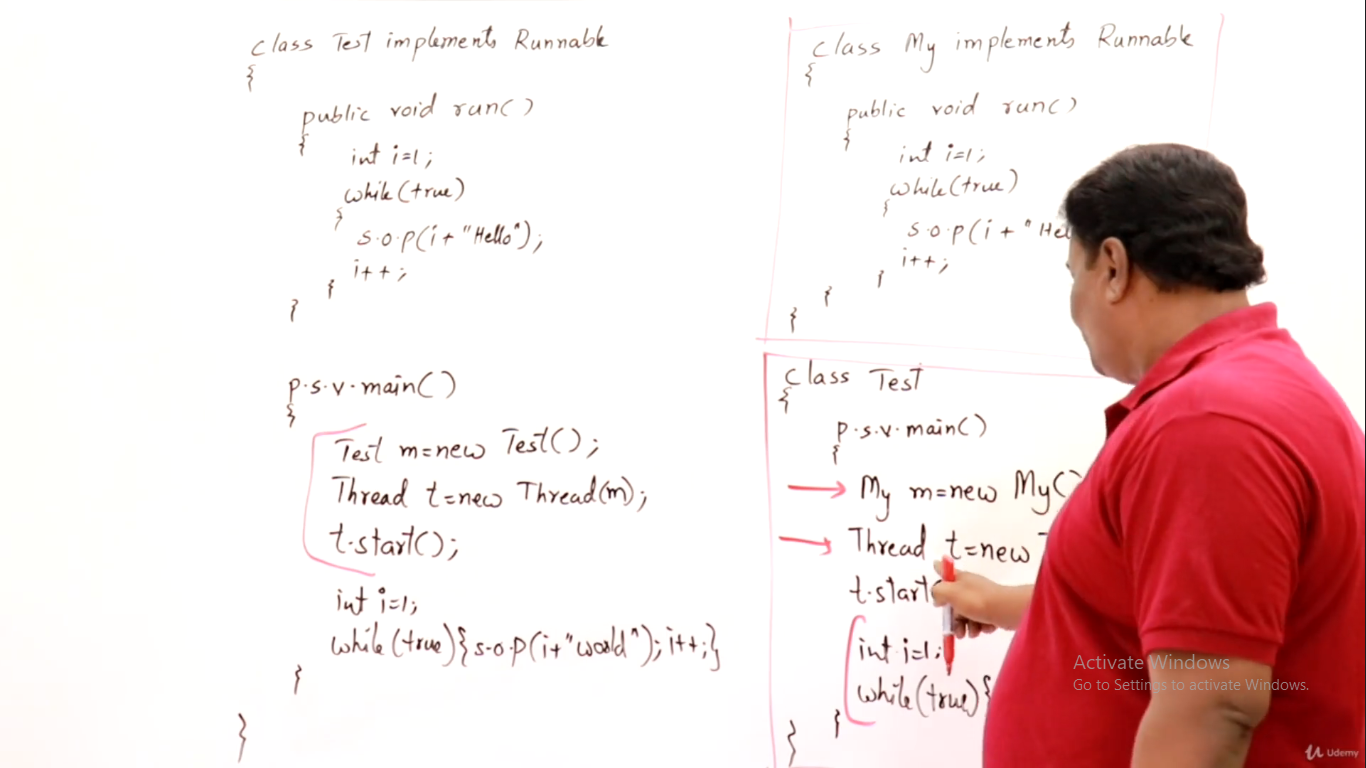 class Test implements Runnable
{
public void run()
{
int i=1;
while(true)
{
s.o.p(i+"Hello");
i++;
}
}
p.s.v.main()
{
Test m=new Test();
Thread t=new Thread(m);
t.start();
int i=1;
while(true){s.o.p(i+"world");i++;}
}
}
class My implements Runnable
{
public void run()
{
int i=1;
while(true)
{
s.o.p(i+"
i++;
}
}
}
class Test
{
p.s.v.main()
{
My m=new My()
Thread t=new
t.start
int i=1;
while(true){
}
}
Activate Windows
Go to Settings to activate Windows.
Udemy